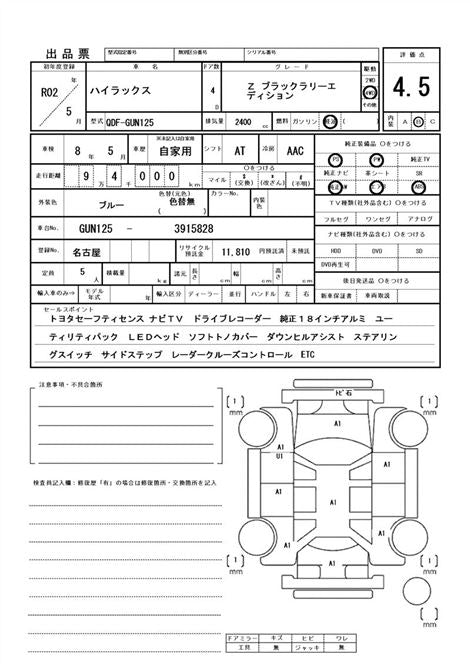 出品票 型式指定番号 類別区分番号 シリアル番号
初年度登録 車名 ドア数 グレード 駆動 評価点
R02 年 5 月 ハイラックス 4 D Z ブラックラリーエディション 2WD 4WD その他 4.5
型式 QDF-GUN125 排気量 2400 cc 燃料 ガソリン 軽油 内装 A B C
車検 8 年 5 月 車歴 ※未記入は自家用 自家用 シフト AT 冷房 AAC 純正装備品 〇をつける
PS PW 純正TV
走行距離 9 万 4 千 0 0 0 km 〇をつける マイル $ (交換) * (改ざん) # (不明) 純正ナビ 革シート SR
純正AW エアB ABS
外装色 ブルー 色替(元色) 色替無 ( ) カラーNo. 内装色 TV種類(社外品含む) 〇をつける
フルセグ ワンセグ アナログ
車台No. GUN125 - 3915828 ナビ種類(社外品含む) 〇をつける
登録No. 名古屋 リサイクル預託金 11,810 円預託済 未預託 HDD DVD SD
DVD再生可
定員 5 人 積載量 kg 諸元 長さ cm 幅 cm 高さ cm 後日発送品 〇をつける
輸入車のみ⇒ モデル年式 年 輸入区分 ディーラー 並行 ハンドル 左 右 新車保証書 車両取説
セールスポイント
トヨタセーフティセンス ナビTV ドライブレコーダー 純正18インチアルミ ユー
ティリティパック LEDヘッド ソフトトノカバー ダウンヒルアシスト ステアリン
グスイッチ サイドステップ レーダークルーズコントロール ETC
注意事項・不具合箇所
トビ石
( 1 ) mm ( 1 ) mm
A1
A1 A1
U1
A1 A1 A1
A1 A1
( 1 ) mm ( 1 ) mm
A1
( ) mm
検査員記入欄:修復歴「有」の場合は修復箇所・交換箇所を記入
Fアミラー キズ ヒビ ワレ
工具 無 ジャッキ 無